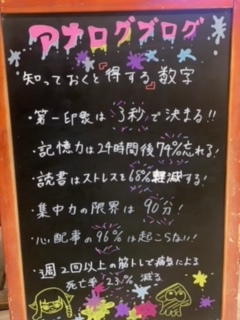 アナログブログ
・知っておくと『得する』数字
・第一印象は3秒で決まる!!
・記憶力は24時間後74%忘れる!
・読書はストレスを68%軽減する!
・集中力の限界は90分!
・心配事の96%は起こらない!
・週2回以上の筋トレで病気による
死亡率23.1%減る